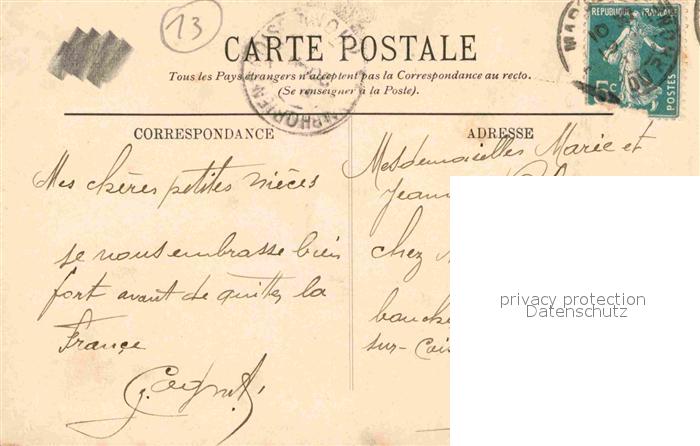 13
CARTE POSTALE
Tous les Pays étrangers n'acceptent pas la Correspondance au recto.
(Se renseigner à la Poste).
REPUBLIQUE FRANÇAISE
5c
POSTES
CORRESPONDANCE
Mes chères petites nièces
je vous embrasse bien
fort avant de quitter la
France
ADRESSE
Mesdemoiselles Marie et
Jeann
chez
bouche
sur-Cois
privacy protection
Datenschutz